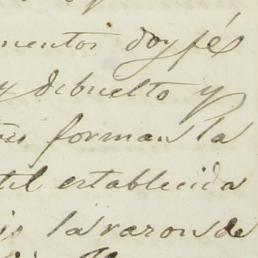 mentos doy fé
y debuelto y
forman la
til establecida
la razon de